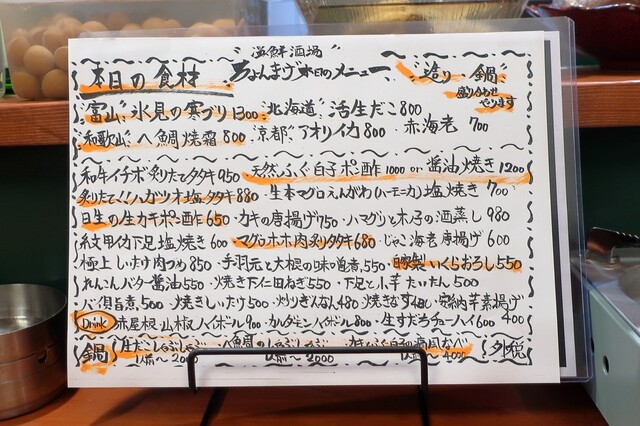 海鮮酒場
本日の食材 ちょんまげ本日のメニュー 造り 鍋
盛り合わせやってます
富山 氷見の寒ブリ1300 北海道 活生だこ800
和歌山 へ鯛焼霜800 京都 アオリイカ800 赤海老 700
和牛イチボ炙りたてタタキ950 天然ふぐ白子ポン酢1000 or 醤油焼き1200
炙りたて!!ハガツオ塩タタキ880・生本マグロえんがわ(ハーモニカ)塩焼き700
日生の生カキポン酢650・カキの唐揚げ750・ハマグリと木ノ子の酒蒸し980
紋甲イカ下足塩焼き600・マグロホホ肉炙りタタキ680・じゃこ海老唐揚げ600
極上しいたけ肉つめ850・手羽元と大根の味噌煮550・自家製いくらおろし550
れんこんバター醤油550・焼き下仁田ねぎ550・下足と小芋たいたん500
バイ貝旨煮500・焼きしいたけ500・炒りぎんなん480・焼きなす480・安納芋素揚げ400
Drink 赤屋根・山椒ハイボール900・カルダモンハイボール800・生すだちチューハイ600
鍋 生だこしゃぶしゃぶ へ鯛のしゃぶしゃぶ 外税
1人前〜2000 1人前〜2000 1人前4000